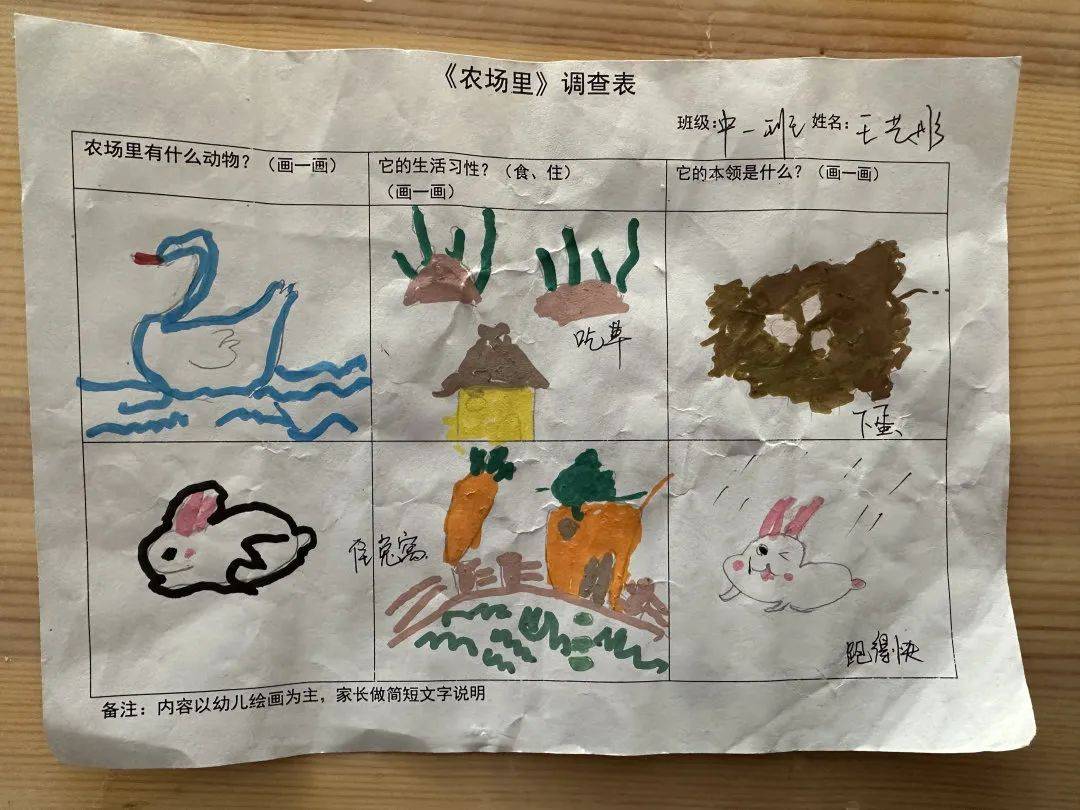 《农场里》调查表
班级:中一班 姓名:王艺彤
农场里有什么动物？（画一画）
它的生活习性？（食、住）
（画一画）
它的本领是什么？（画一画）
吃草
下蛋、
住兔窝
跑得快
备注：内容以幼儿绘画为主，家长做简短文字说明